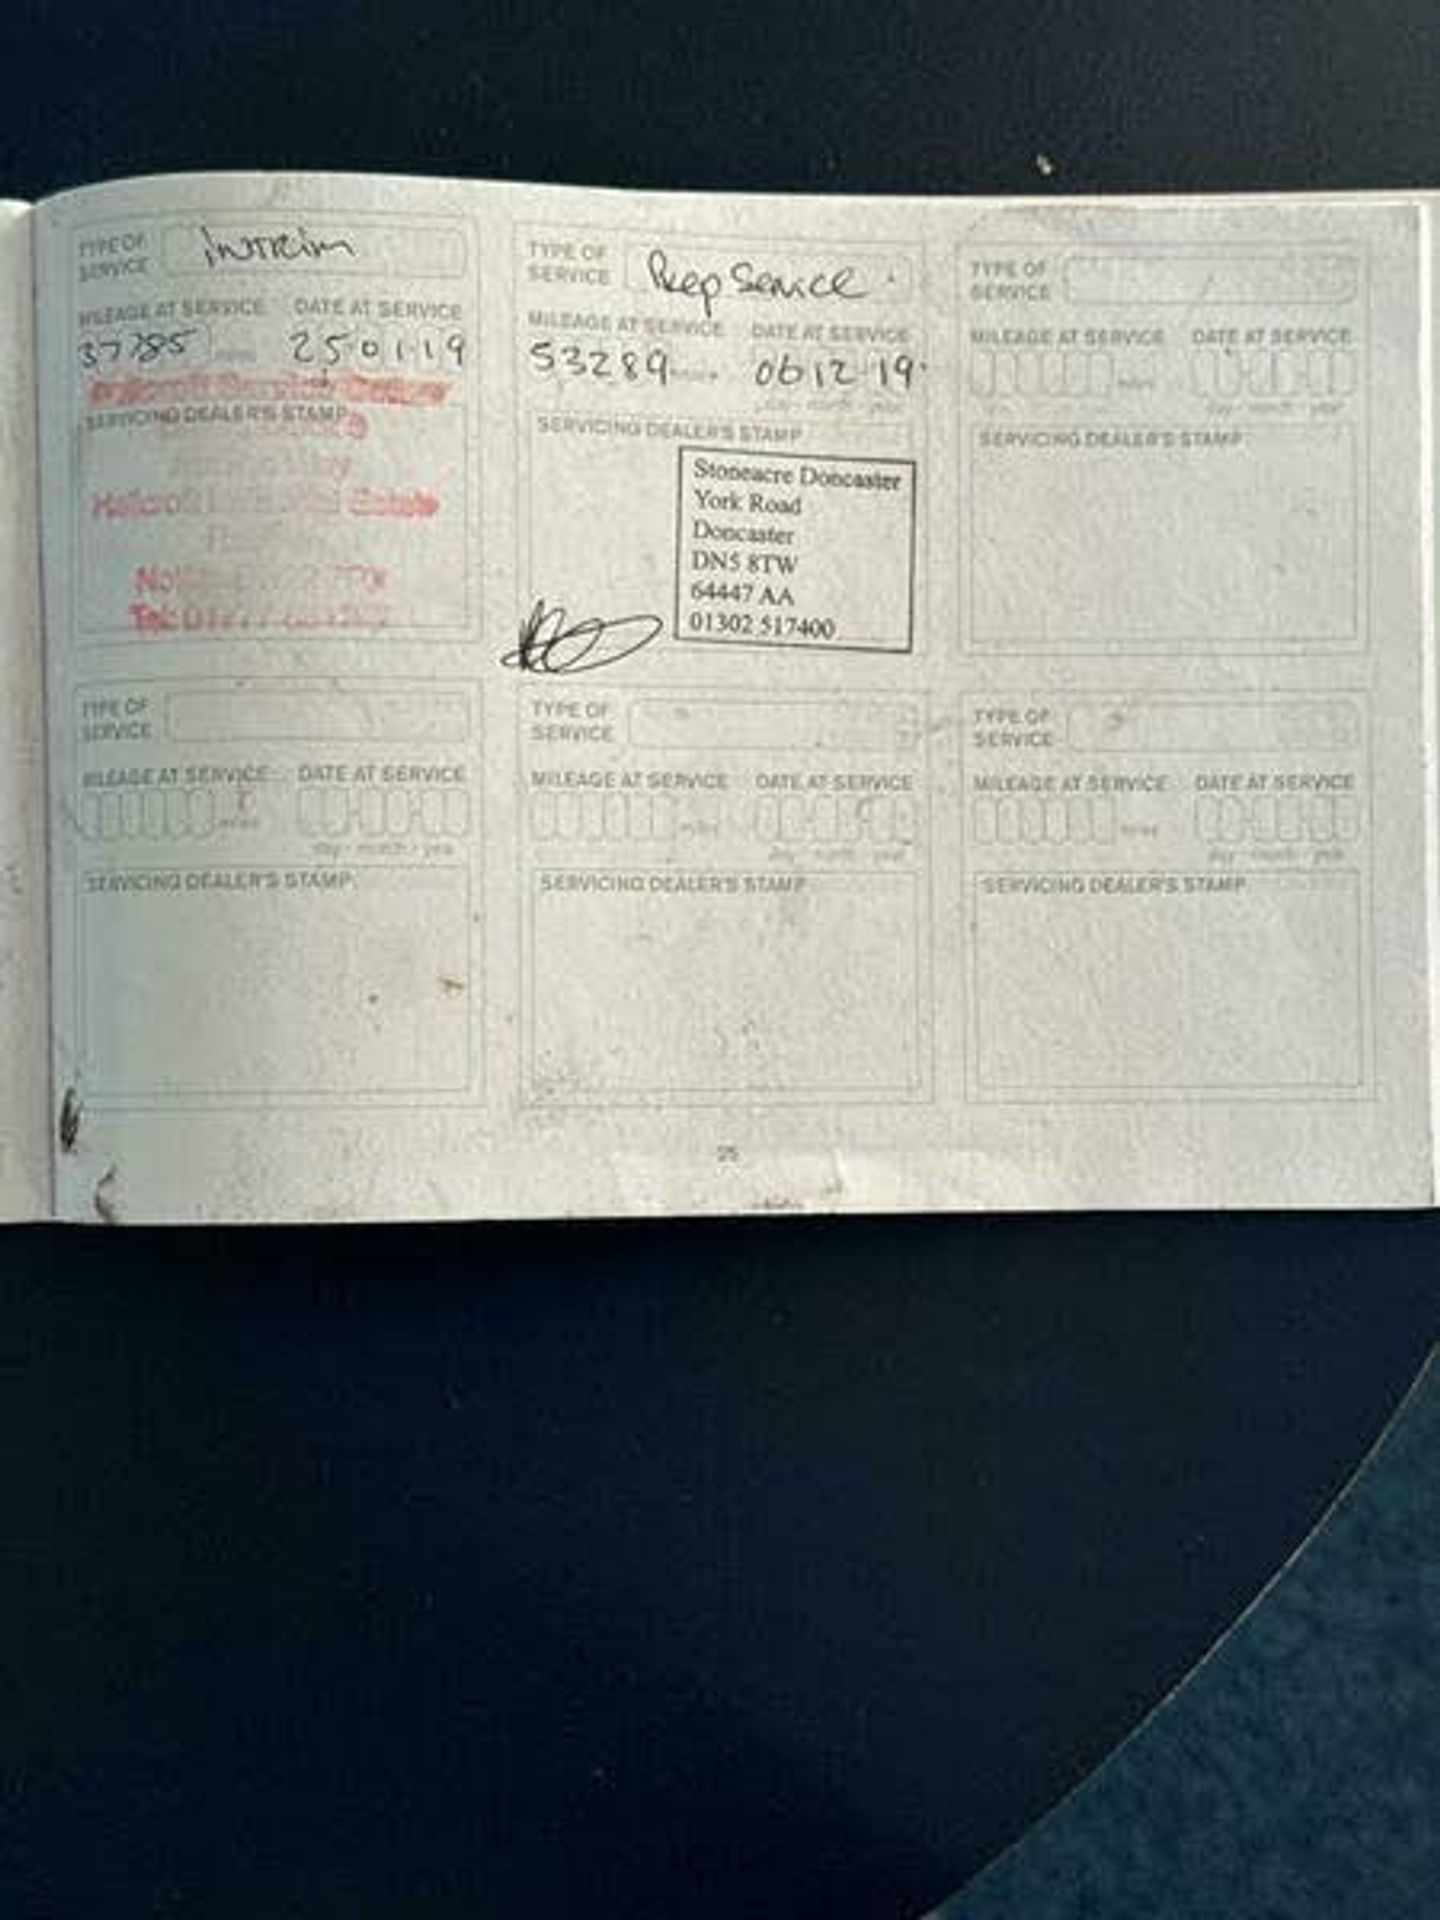 TYPE OF
SERVICE
Interim
MILEAGE AT SERVICE DATE AT SERVICE
37785 miles 25 01 19
SERVICING DEALER'S STAMP
Estate
Tel:
TYPE OF
SERVICE
Prep Service
MILEAGE AT SERVICE DATE AT SERVICE
53289 miles 06 12 19
day - month - year
SERVICING DEALER'S STAMP
Stoneacre Doncaster
York Road
Doncaster
DN5 8TW
64447 AA
01302 517400
TYPE OF
SERVICE
MILEAGE AT SERVICE DATE AT SERVICE
miles
day - month - year
SERVICING DEALER'S STAMP
TYPE OF
SERVICE
MILEAGE AT SERVICE DATE AT SERVICE
miles
day - month - year
SERVICING DEALER'S STAMP
TYPE OF
SERVICE
MILEAGE AT SERVICE DATE AT SERVICE
miles
day - month - year
SERVICING DEALER'S STAMP
TYPE OF
SERVICE
MILEAGE AT SERVICE DATE AT SERVICE
miles
day - month - year
SERVICING DEALER'S STAMP
25